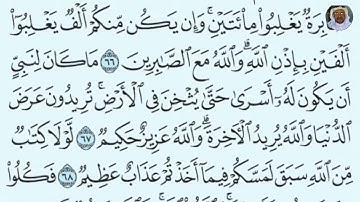 بِرَةٌ يَغْلِبُوا۟ مِا۟ئَتَيْنِ ۚ وَإِن يَكُن مِّنكُمْ أَلْفٌ يَغْلِبُوٓا۟
أَلْفَيْنِ بِإِذْنِ ٱللَّهِ ۗ وَٱللَّهُ مَعَ ٱلصَّـٰبِرِينَ ٦٦ مَا كَانَ لِنَبِىٍّ
أَن يَكُونَ لَهُۥٓ أَسْرَىٰ حَتَّىٰ يُثْخِنَ فِى ٱلْأَرْضِ ۚ تُرِيدُونَ عَرَضَ
ٱلدُّنْيَا وَٱللَّهُ يُرِيدُ ٱلْـَٔاخِرَةَ ۗ وَٱللَّهُ عَزِيزٌ حَكِيمٌ ٦٧ لَّوْلَا كِتَـٰبٌ
مِّنَ ٱللَّهِ سَبَقَ لَمَسَّكُمْ فِيمَآ أَخَذْتُمْ عَذَابٌ عَظِيمٌ ٦٨ فَكُلُوا۟